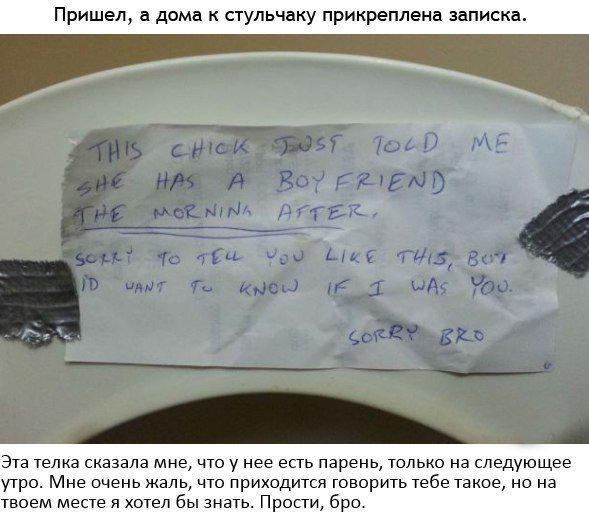 Пришел, а дома к стульчаку прикреплена записка.
THIS CHICK JUST TOLD ME
SHE HAS A BOYFRIEND
THE MORNING AFTER.
SORRY TO TELL YOU LIKE THIS, BUT
I'D WANT TO KNOW IF I WAS YOU.
SORRY BRO
Эта телка сказала мне, что у нее есть парень, только на следующее
утро. Мне очень жаль, что приходится говорить тебе такое, но на
твоем месте я хотел бы знать. Прости, бро.